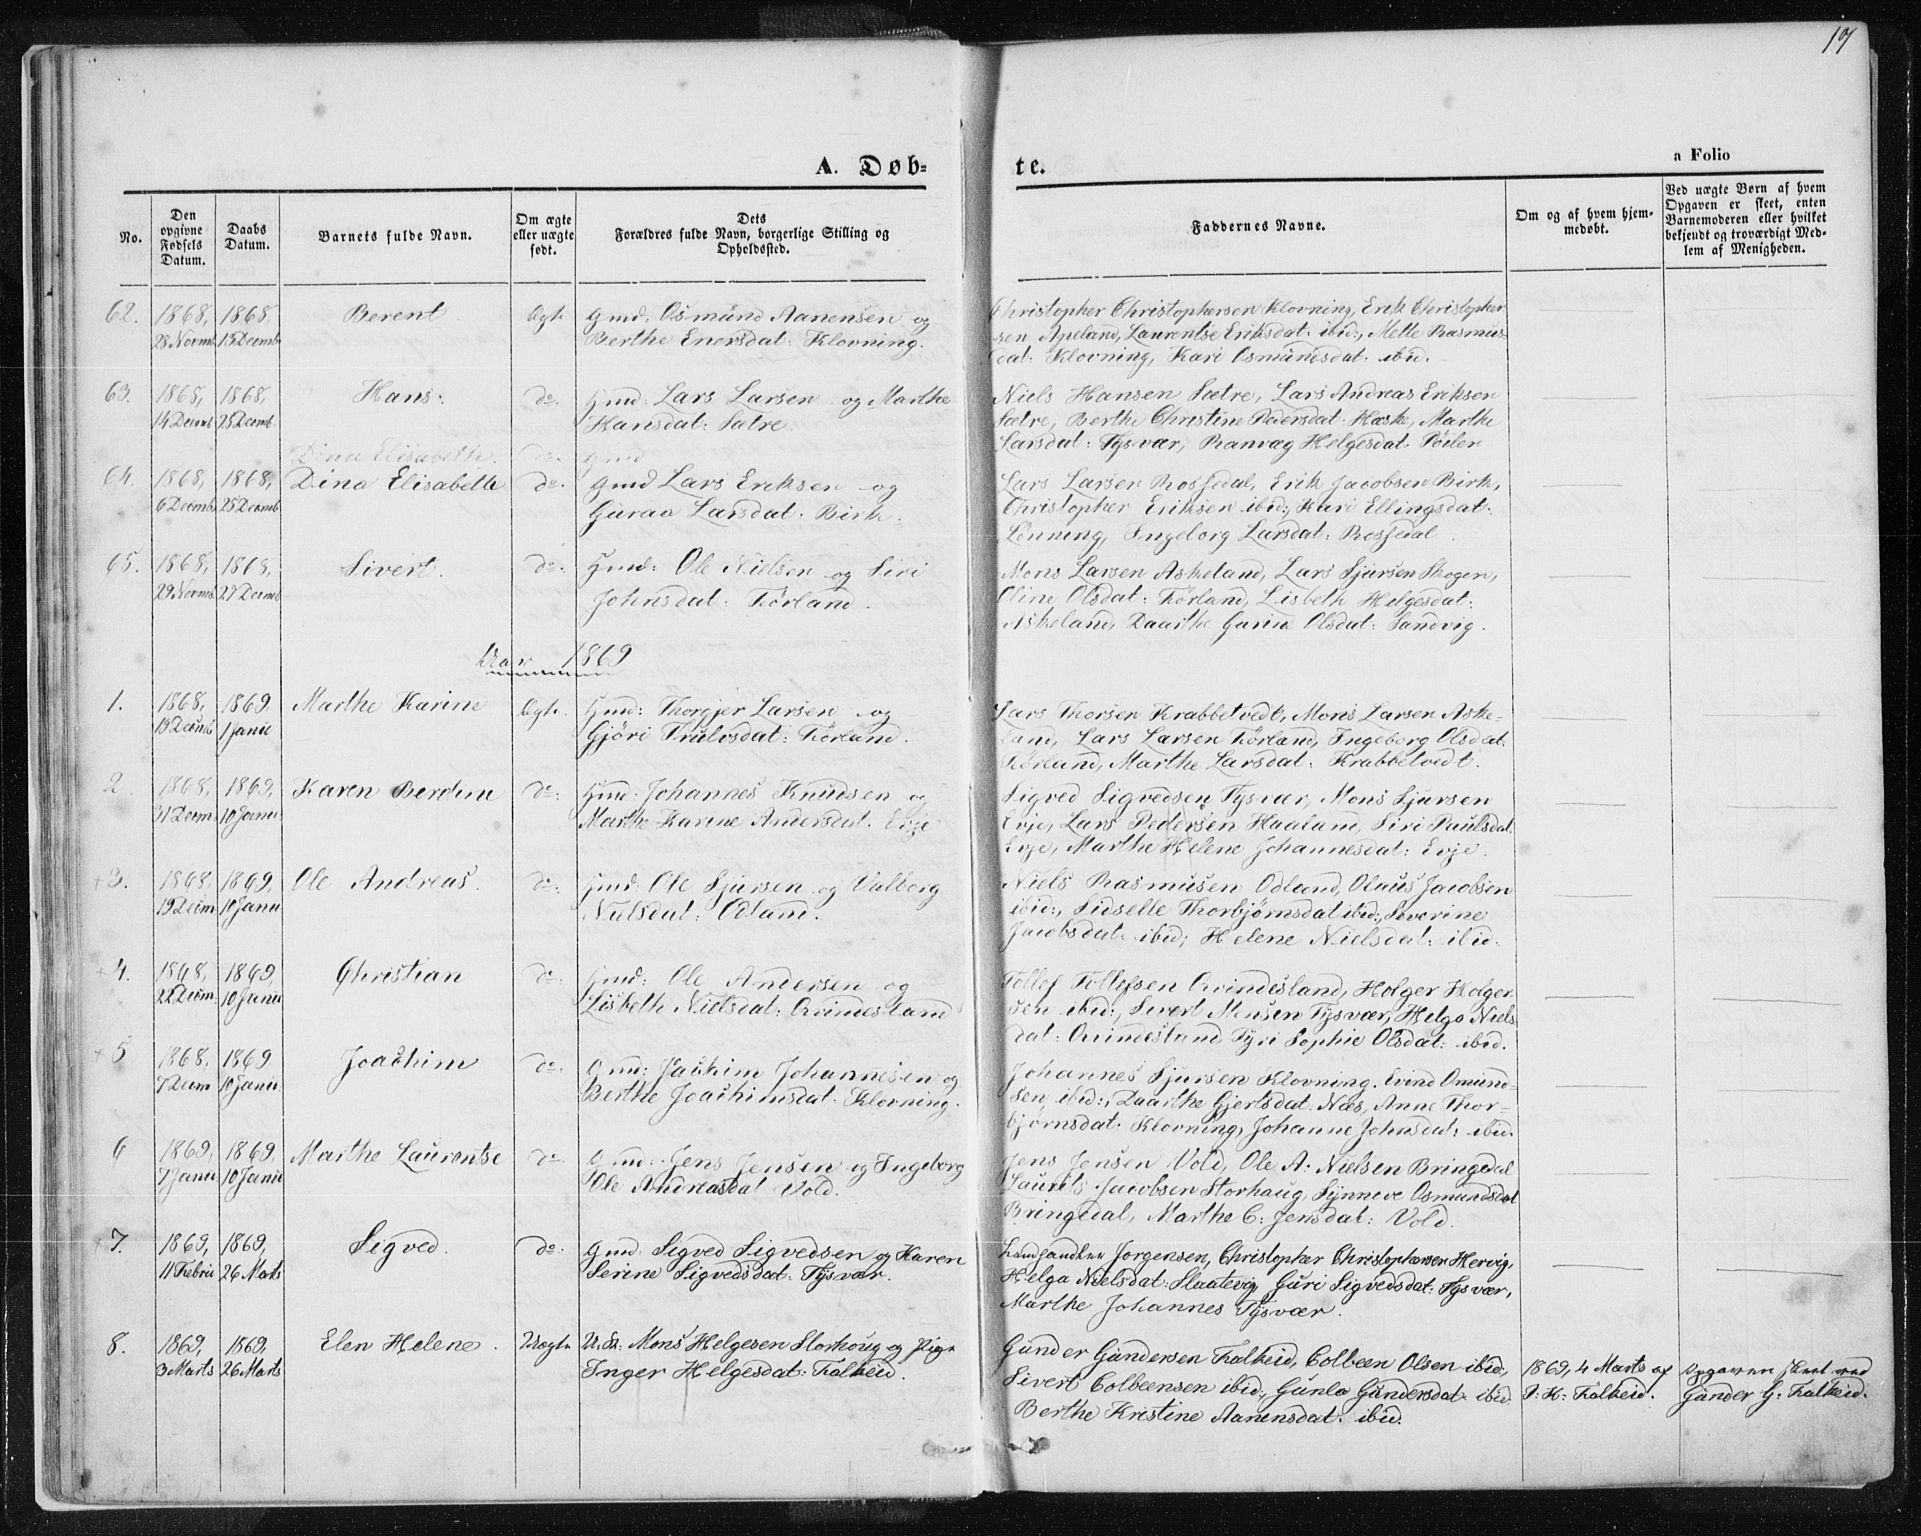 17
A. Døb-
te.
a Folio
No.
Den opgivne Fødsels Datum.
Daabs Datum.
Barnets fulde Navn.
Om ægte eller uægte født.
Dets Forældres fulde Navn, borgerlige Stilling og Opholdssted.
Faddernes Navne.
Om og af hvem hjemmedøbt.
Ved uægte Børn af hvem Opgaven er skeet, enten Barnemoderen eller hvilket bekjendt og troværdigt Medlem af Menigheden.
62. 1868, 1868 Berent Ægt. Gmd: Osmund Aanensen og
28 Novmb. 13 Decmb Berthe Enersdat: Klovning.
Christopher Christophersen Klovning, Erik Christopher
sen Apeland, Laurentse Eriksdat: ibid:, Mette Rasmus
dat: Klovning, Kari Osmundsdat: ibid.
63. 1868, 1868, Hans. do. Gmd: Lars Larsen og Marthe
14 Decmb 25 Decmb. Hansdat: Sætre.
Niels Hansen Sætre, Lars Andreas Eriksen
Sætre, Berthe Christine Pedersdat: Hæske, Marthe
Larsdat: Tysvær, Ranvæg Helgesdat:
Dina Elisabeth. do. Gmd
64. 1868, 1868, Dina Elisabeth do. Gmd Lars Eriksen og
6 Decmb. 25 Decmb Guraa Larsdat: Birk.
Lars Larsen Rossedal, Erik Jacobsen Birk,
Christopher Eriksen ibid:, Kari Ellingsdat:
Lønning, Ingeborg Larsdat: Rossedal.
65. 1868, 1868, Sivert. do. Gmd: Ole Nielsen og Siri
29 Novmb. 27 Decmb Johnsdat: Kørland.
Mons Larsen Askeland, Lars Sjursen Skogen,
Oline Olsdat: Kørland, Lisbeth Helgesdat:
Askeland, Daarthe Gurine Olsdat: Sandvig.
Aar 1869
1. 1868, 1869, Marthe Karine Ægt. Gmd: Thorgjer Larsen og
13 Decmb 1 Janu Gjøri Trulsdat: Kørland.
Lars Thorsen Krabbetvedt, Mons Larsen Aske-
land, Lars Larsen Kørland, Ingeborg Olsdat:
Kørland, Marthe Larsdat: Krabbetvedt.
2. 1868, 1869, Karen Berdine do: Gmd: Johannes Knudsen og
11 Decm 10 Janu Marthe Karine Andersdat: Evje
Sigved Sigvedsen Tysvær, Mons Sjursen
Evje, Lars Pedersen Haaland, Siri Paulsdat:
Evje, Marthe Helene Johannesdat: Evje.
+3. 1868, 1869, Ole Andreas. do: Gmd: Ole Sjursen og Valborg
19 Decm 10 Janu Nielsdat: Odland.
Niels Rasmusen Odland, Olaus Jacobsen
ibid:, Sidselle Thorbjørnsdat: ibid:, Severine
Jacobsdat: ibid; Helene Nielsdat: ibid.
+4. 1868, 1869, Christian do: Gmd: Ole Andersen og
22 Decm. 10 Janu Lisbeth Nielsdat: Qvindesland
Tollef Tollefsen Qvindesland, Holger Holger
sen ibid:, Sivert Monsen Tysvær, Helga Niels
dat: Qvindesland Tyri Sophie Olsdat: ibid.
+5 1868, 1869 Joachim do: Gmd: Joachim Johannesen og
7 Decm 10 Janu Berthe Joachimsdat: Klovning.
Johannes Sjursen Klovning. Evind Omund-
sen ibid:, Daarthe Gjertsdat: Næs, Anne Thor-
bjørnsdat: Klovning, Johanne Johnsdat: ibid.
6 1869, 1869, Marthe Laurentse do Gmd: Jens Jensen og Ingeborg
7 Janu 10 Janu Ole Andreasdat Vold.
Jens Jensen Vold, Ole A: Nielsen Bringedal
Laurits Jacobsen Storhaug, Synneve Osmundsdat
Bringedal, Marthe C: Jensdat: Vold.
+7. 1869, 1869, Sigved. do: Gmd: Sigved Sigvedsen og Karen
11 Febru 26 Marts Serine Sigvedsdat: Tysvær.
Landhandler Jørgensen, Christopher Christophersen Hervig,
Helga Nielsdat: Slaatevig, Guri Sigvedsdat: Tysvær,
Marthe Johannes Tysvær.
8. 1869, 1869, Elen Helene. Uægte U.K: Mons Helgesen Storhoug og Pige
3 Marts 26 Marts Inger Helgesdat: Falkeid.
Gunder Gundersen Falkeid, Colbeen Olsen ibid,
Sivert Colbeensen ibid:, Gunla Gundersdat: ibid.
Berthe Kristine Aanensdat: ibid.
1869, 4 Marts af
P: H: Falkeid.
Opgaven skeet ved
Gunder G: Falkeid.